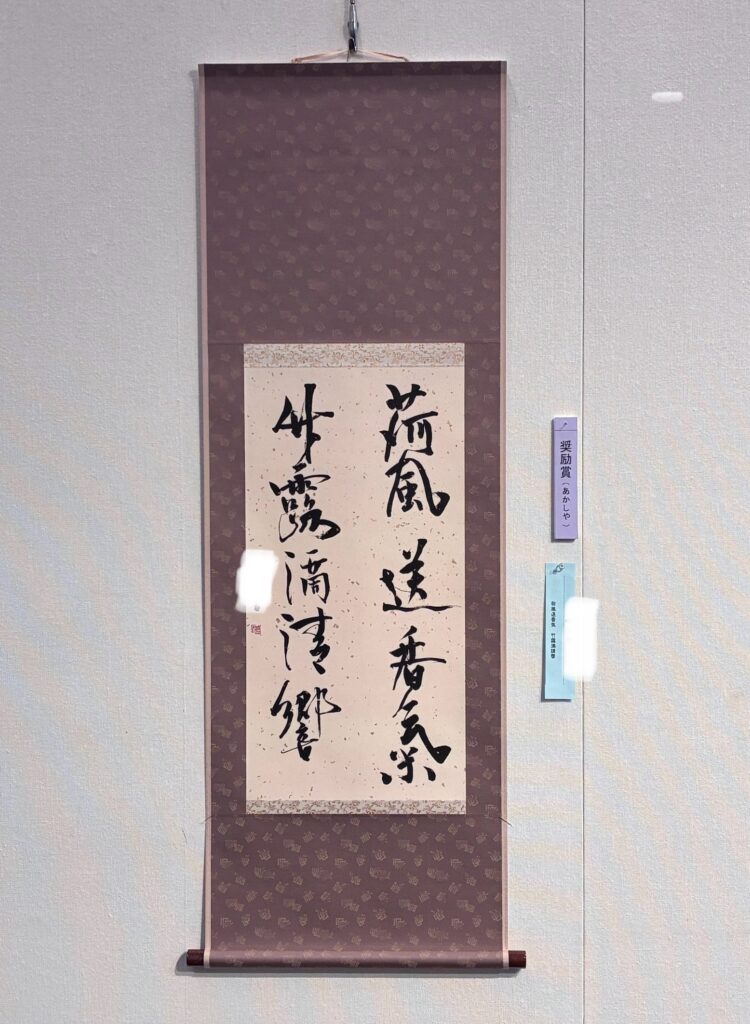 荷風送香氣
竹露滴清響
奨励賞（あかしや）
荷風送香気　竹露滴清響